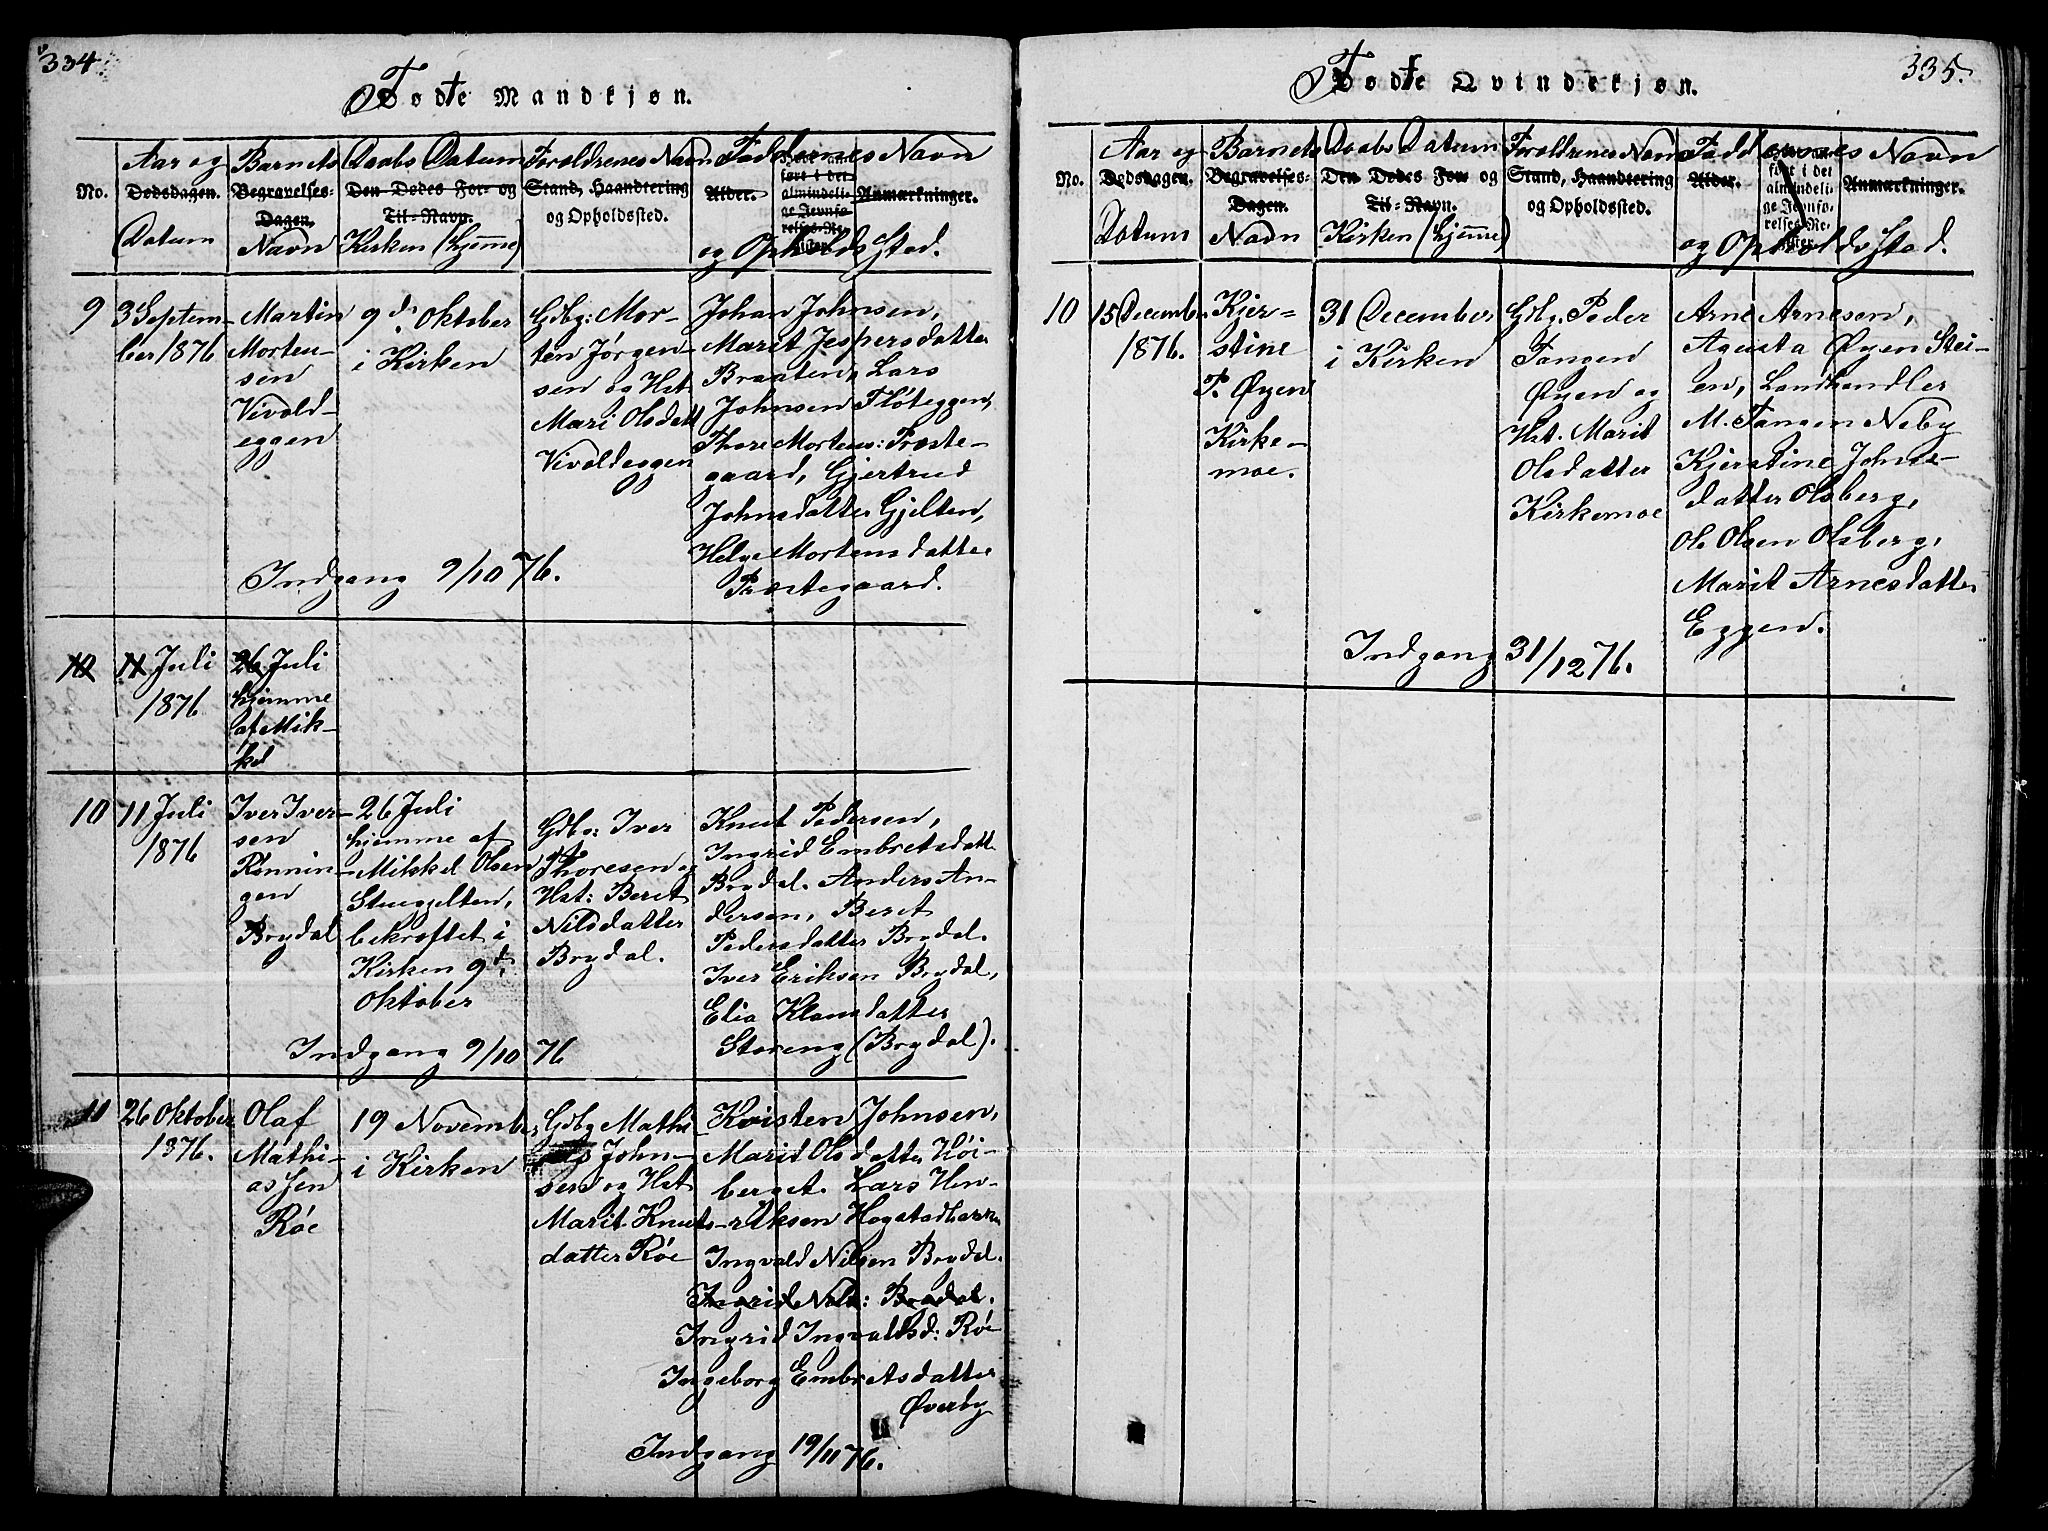 334.
Fødte Mandkjøn.
No.
Aar og
Dødsdagen.
Datum
Barnets
Begravelses-
Dagen,
Navn
Daabs Datum
Den Dødes For- og
Til-Navn.
Kirken (hjemme)
Foreldrenes Navn
Stand, Haandtering
og Opholdssted.
Faddernes Navn
Alder.
ført i det
almindeli-
ge Jevnfø-
relses-Re-
gister.
Anmærkninger.
og Opholds Sted.
9
3 Septem-
ber 1876
Martin
Morten-
sen
Vivold-
eggen
9d. Oktober
i Kirken
Gdbg: Mor-
ten Jørgen-
sen og Hst
Mari Olsdatt
Vivoldeggen
Johan Johnsen,
Marit Jespersdatter
Braaten, Lars
Johnsen Fløteggen,
Thore Mortens: Præste-
gaard, Gjertrud
Johnsdatter Gjelten,
Helge Mortensdatter
Præstegaard.
Indgang 9/10 76.
10
11 Juli
1876
26 Juli
hjemme
af Mik-
kel
10
11 Juli
1876
Iver Iver-
sen
Rønnin
gen
Brydal
26 Juli
hjemme af
Mikkel Olsen
Stuggelten,
bekræftet i
Kirken 9d.
Oktober
Gdbg: Iver
Thoresen og
Hst: Beret
Nilsdatter
Brydal.
Knut Pedersen,
Ingrid Embretsdatt
Brydal. Anders An-
dersen, Beret
Pedersdatter Brydal.
Iver Eriksen Brydal,
Elia Klausdatter
Storeng (Brydal).
Indgang 9/10 76
11
26 Oktober
1876.
Olaf
Mathi-
assen
Røe
19 November
i Kirken
Gdbg Mathi
as John-
sen og Hst
Marit Knuts-
datter Røe
Kristen Johnsen,
Marit Olsdatter Høi-
berget. Lars Hen-
riksen Hogstadbakken
Ingvald Nilsen Brydal.
Ingrid Nils: Brydal.
Ingrid Ingvaldsd: Røe
Ingeborg Embretsdatter
Øverby
Indgang 19/11 76.
335.
Fødte Qvindekjøn.
No.
Aar og
Dødsdagen.
Datum
Barnets
Begravelses-
Dagen.
Navn
Daabs Datum
Den Dødes For- og
Til-Navn.
Kirken (hjemme)
Foreldrenes Navn
Stand, Haandtering
og Opholdssted.
Faddernes Navn
Alder.
ført i det
almindeli-
ge Jevnfø-
relses-Re-
gister.
Anmærkninger.
og Opholds Sted.
10
15 December
1876.
Kjer-
stine
P. Øyen
Kirke-
moe.
31 December
i Kirken
Gdbg. Peder
Tangen
Øyen og
Hst. Marit
Olsdatter
Kirkemoe
Arne Arnesen,
Agusta Øyen Stei-
en, Landhandler
M. Tangen Neby
Kjerstine Johns-
datter Olsberg,
Ole Olsen Olsberg,
Marit Arnesdatter
Eggen.
Indgang 31/12 76.